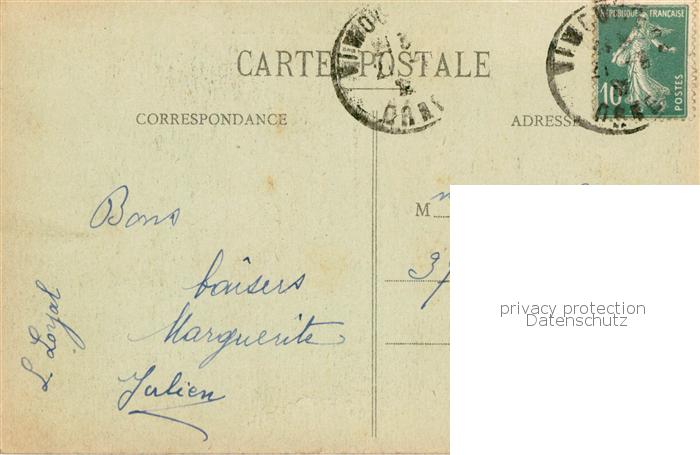 RÉPUBLIQUE FRANÇAISE
10
POSTES
CARTE POSTALE
CORRESPONDANCE
ADRESSE
M
Bons
baisers
Marguerite
Julien
L. Loyal
privacy protection
Datenschutz